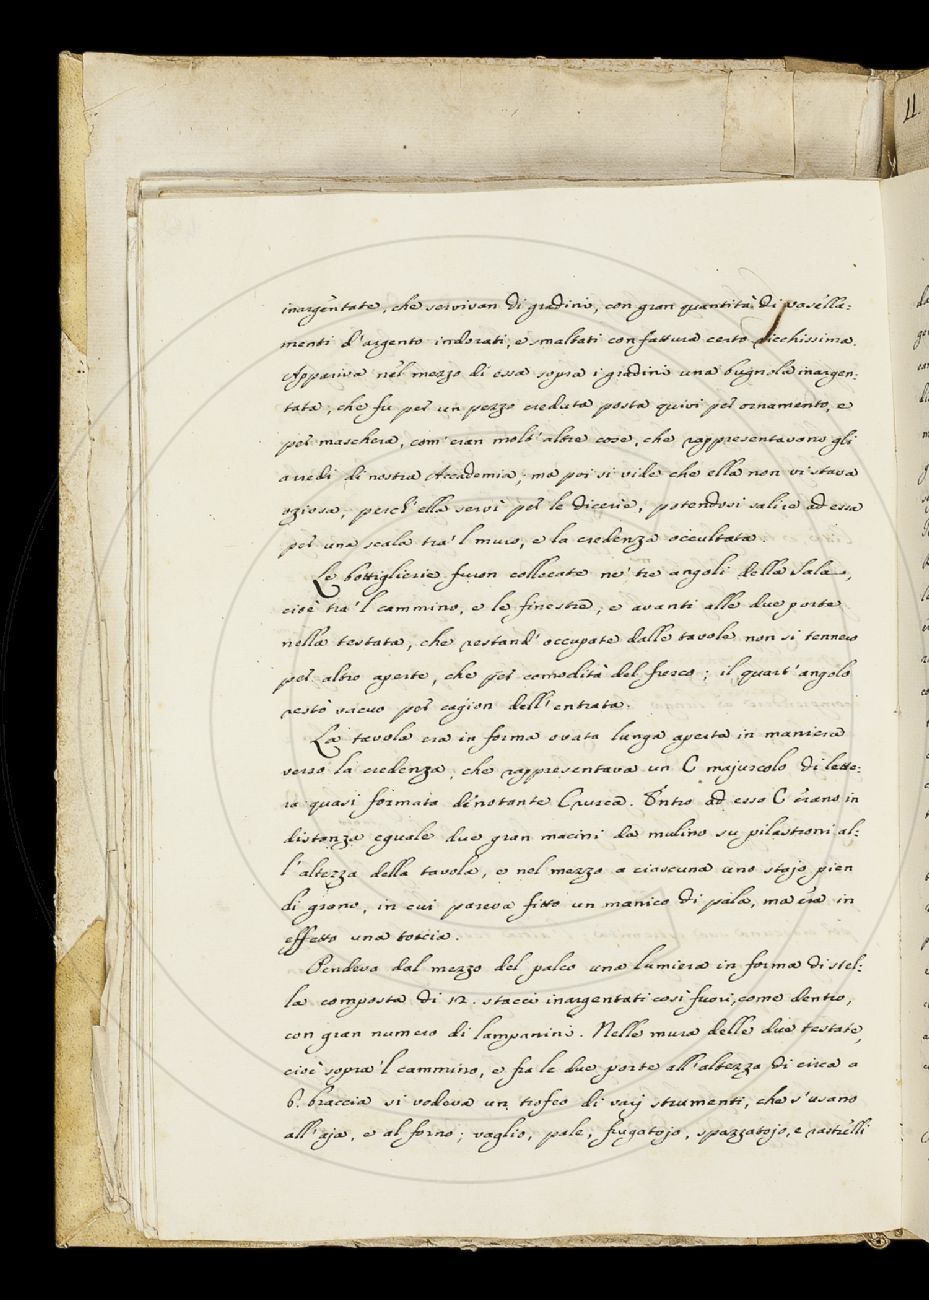 inargentate, che servivan di gradini, con gran quantità di vasella:
menti d'argento indorati, e smaltati con fattura certo ricchissima.
Appariva nel mezzo di essa sopra i gradini una bugnola inargen:
tata, che fu per un pezzo creduta posta quivi per ornamento, e
per maschera, com'eran molt'altre cose, che rappresentavano gli
arredi di nostra Accademia; ma poi si vide che ella non vi stava
oziosa, perch'ella servì per le dicerie, potendovi salire ad essa
per una scala tra'l muro, e la credenza occultata.
Le bottiglierie furon collocate ne' tre angoli della Sala,
cioè tra'l cammino, e le finestre, e avanti alle due porte
nella testata, che restand'occupate dalle tavole non si tennero
per altro aperte, che per comodità del fresco; il quart'angolo
restò vacuo per cagion dell'entrata.
La tavola era in forma ovata lunga aperta in maniera
verso la credenza, che rappresentava un C majuscolo di lette:
ra quasi formata dinotante Crusca. Entro ad esso C erano in
distanza eguale due gran macini da mulino su pilastroni al:
l'altezza della tavola, e nel mezzo a ciascuna uno stajo pien
di grano, in cui pareva fitto un manico di pala, ma era in
effetto una torcia.
Pendeva dal mezzo del palco una lumiera in forma di stel:
la composta di 12. stacci inargentati così fuori, come dentro,
con gran numero di lampanini. Nelle mura delle due testate,
cioè sopra'l cammino, e fra le due porte all'altezza di circa a
6. braccia si vedeva un trofeo di varj strumenti, che s'usano
all'aja, e al forno; vaglio, pale, frugatojo, spazzatojo, e rastrelli
11